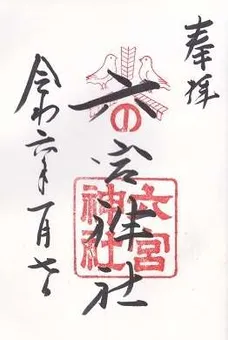 奉拝
六の宮神社
六宮神社
令和六年一月七日